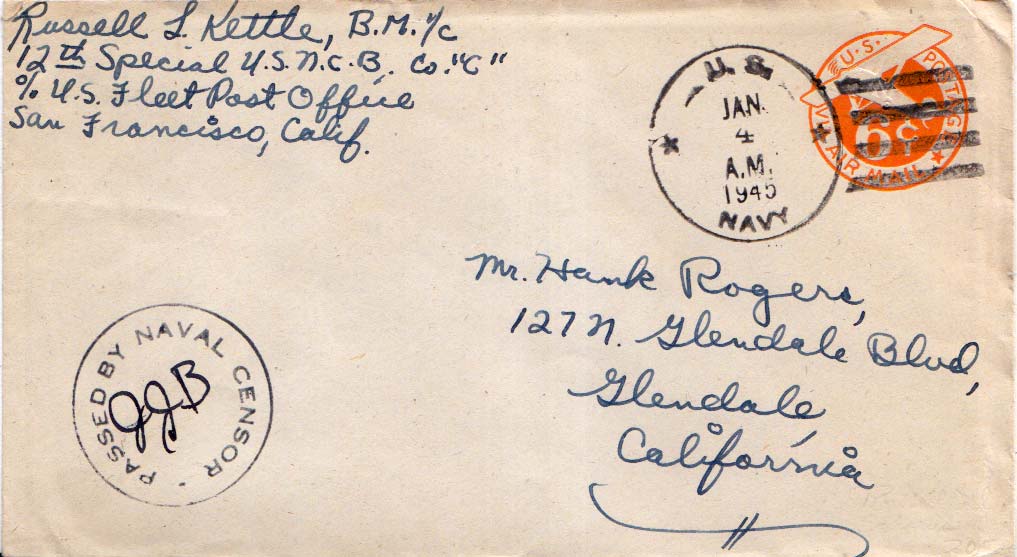 Russell L. Kettle, B.M. 1/c
12th Special U.S.N.C.B. Co. "C"
% U.S. Fleet Post Office
San Francisco, Calif.
U. S.
JAN.
4
A.M.
1945
NAVY
U.S. POSTAGE
6¢
VIA AIR MAIL
Mr. Hank Rogers,
127 N. Glendale Blvd,
Glendale,
California
PASSED BY NAVAL CENSOR
JJB